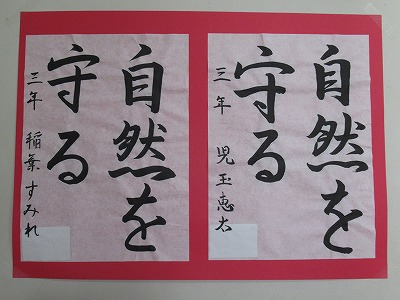 自然を
守る
三年 児玉恵太
自然を
守る
三年 稲葉すみれ